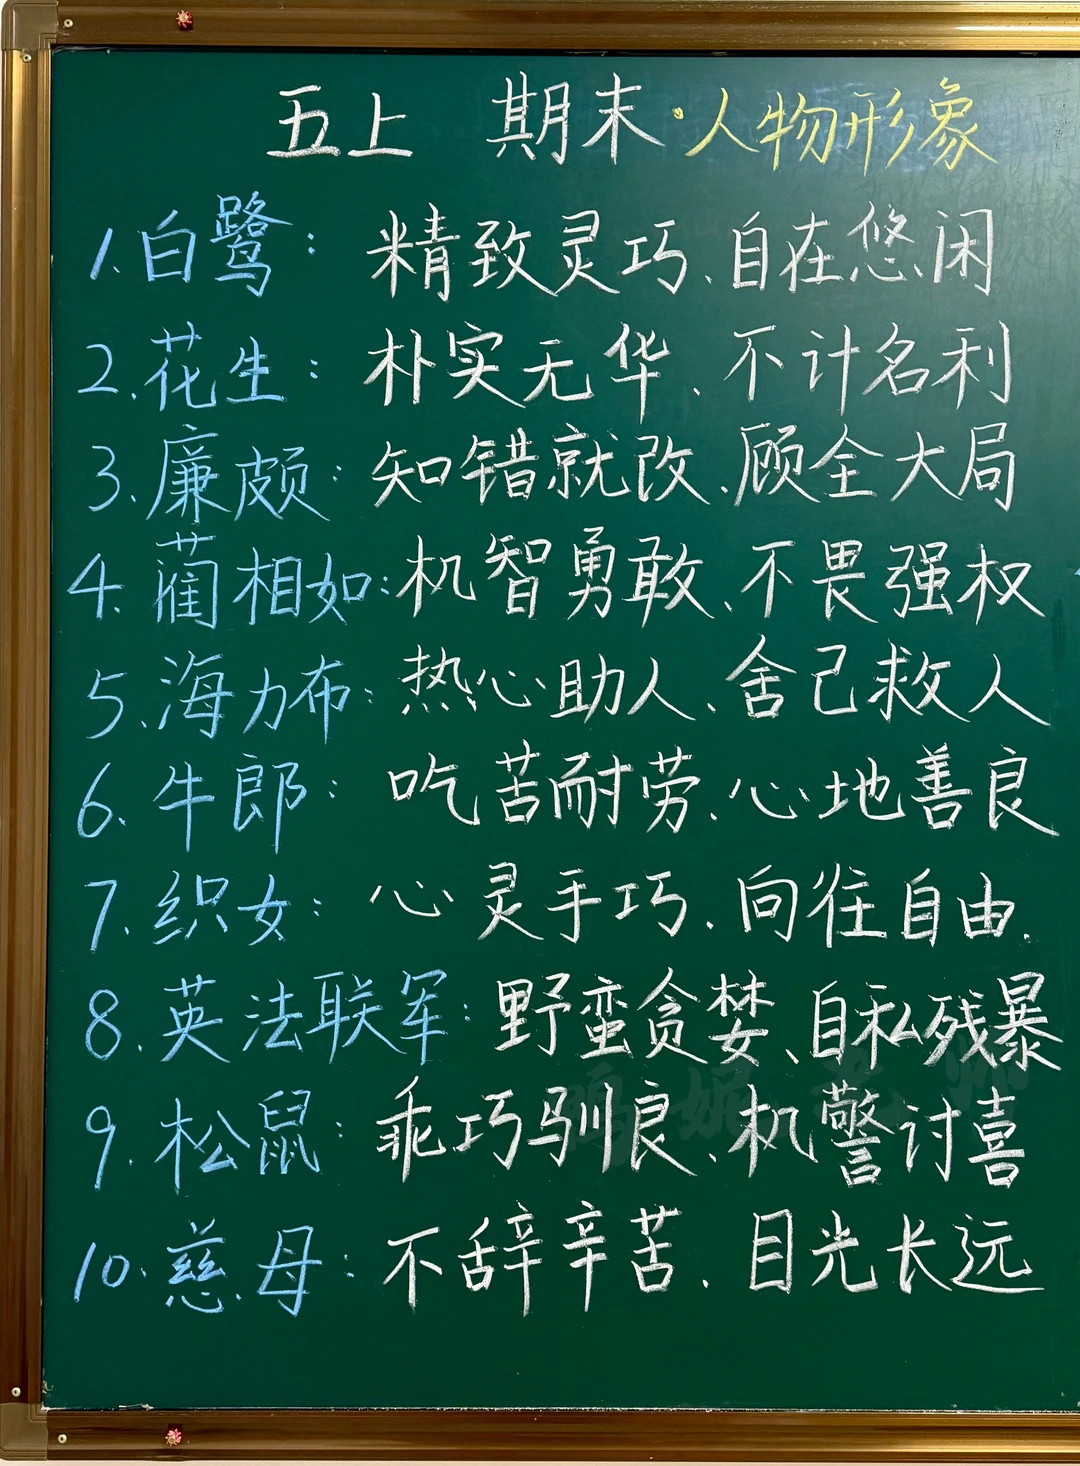 五上 期末·人物形象
1.白鹭：精致灵巧、自在悠闲
2.花生：朴实无华、不计名利
3.廉颇：知错就改、顾全大局
4.蔺相如：机智勇敢、不畏强权
5.海力布：热心助人、舍己救人
6.牛郎：吃苦耐劳、心地善良
7.织女：心灵手巧、向往自由.
8.英法联军：野蛮贪婪、自私残暴
9.松鼠：乖巧驯良、机警讨喜
10.慈母：不辞辛苦、目光长远